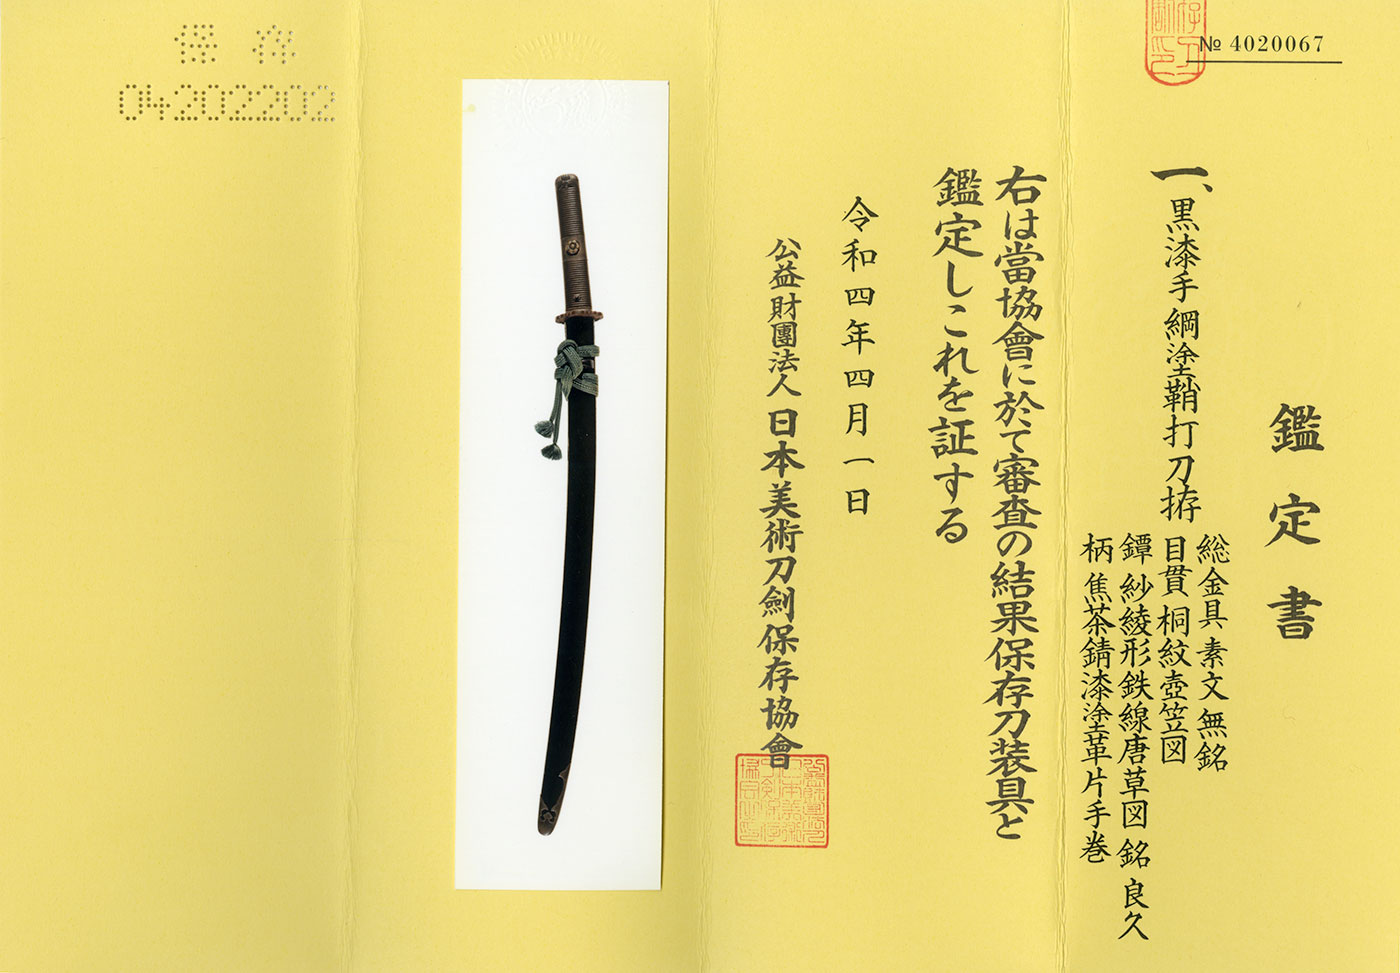 № 4020067
鑑定書
一、黒漆手綱塗鞘打刀拵
総金具 素文 無銘
目貫 桐紋壺笠図
鐔 紗綾形鉄線唐草図 銘 良久
柄 焦茶錆漆塗革片手巻
右は當協會に於て審査の結果保存刀装具と
鑑定しこれを証する
令和四年四月一日
公益財團法人 日本美術刀劍保存協會
保存
04202202